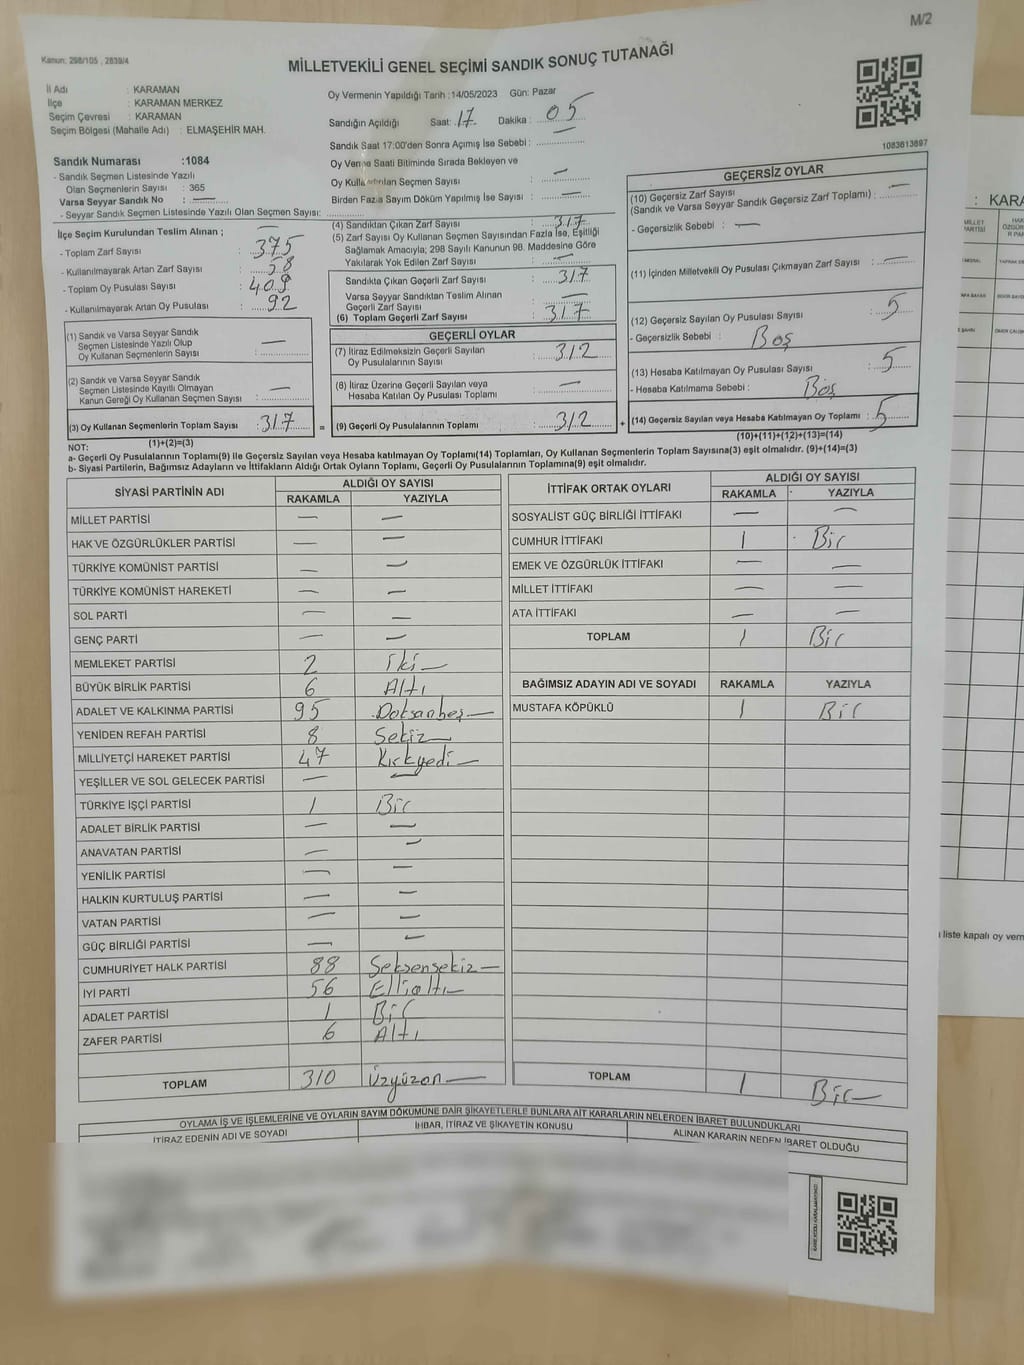 M/2
Kanun: 298/105 , 2839/4
MİLLETVEKİLİ GENEL SEÇİMİ SANDIK SONUÇ TUTANAĞI
İl Adı : KARAMAN
İlçe : KARAMAN MERKEZ
Seçim Çevresi : KARAMAN
Seçim Bölgesi (Mahalle Adı) : ELMAŞEHİR MAH.
Sandık Numarası :1084
- Sandık Seçmen Listesinde Yazılı
Olan Seçmenlerin Sayısı : 365
Varsa Seyyar Sandık No : —
- Seyyar Sandık Seçmen Listesinde Yazılı Olan Seçmen Sayısı:
İlçe Seçim Kurulundan Teslim Alınan ; —
- Toplam Zarf Sayısı : 375
- Kullanılmayarak Artan Zarf Sayısı : 58
- Toplam Oy Pusulası Sayısı : 409
- Kullanılmayarak Artan Oy Pusulası : 92
(1) Sandık ve Varsa Seyyar Sandık
Seçmen Listesinde Yazılı Olup
Oy Kullanan Seçmenlerin Sayısı : —
(2) Sandık ve Varsa Seyyar Sandık
Seçmen Listesinde Kayıtlı Olmayan
Kanun Gereği Oy Kullanan Seçmen Sayısı : —
(3) Oy Kullanan Seçmenlerin Toplam Sayısı : 317 =
(1)+(2)=(3)
Oy Vermenin Yapıldığı Tarih :14/05/2023 Gün: Pazar
Sandığın Açıldığı Saat: 17 Dakika : 05
Sandık Saat 17:00'den Sonra Açımış İse Sebebi : —
Oy Verme Saati Bitiminde Sırada Bekleyen ve
Oy Seçmen Sayısı : —
Birden Fazla Sayım Döküm Yapılmış İse Sayısı : —
(4) Sandıktan Çıkan Zarf Sayısı : 317
(5) Zarf Sayısı Oy Kullanan Seçmen Sayısından Fazla İse, Eşitliği
Sağlamak Amacıyla; 298 Sayılı Kanunun 98. Maddesine Göre
Yakılarak Yok Edilen Zarf Sayısı : —
Sandıkta Çıkan Geçerli Zarf Sayısı : 317
Varsa Seyyar Sandıktan Teslim Alınan
Geçerli Zarf Sayısı : —
(6) Toplam Geçerli Zarf Sayısı : 317
GEÇERLİ OYLAR
(7) İtiraz Edilmeksizin Geçerli Sayılan
Oy Pusulalarının Sayısı : 312
(8) İtiraz Üzerine Geçerli Sayılan veya
Hesaba Katılan Oy Pusulası Toplamı : —
(9) Geçerli Oy Pusulalarının Toplamı : 312 +
1083613897
GEÇERSİZ OYLAR
(10) Geçersiz Zarf Sayısı
(Sandık ve Varsa Seyyar Sandık Geçersiz Zarf Toplamı) : —
- Geçersizlik Sebebi : —
(11) İçinden Milletvekili Oy Pusulası Çıkmayan Zarf Sayısı : —
(12) Geçersiz Sayılan Oy Pusulası Sayısı : 5
- Geçersizlik Sebebi : Boş
(13) Hesaba Katılmayan Oy Pusulası Sayısı : 5
- Hesaba Katılmama Sebebi : Boş
(14) Geçersiz Sayılan veya Hesaba Katılmayan Oy Toplamı : 5
(10)+(11)+(12)+(13)=(14)
NOT:
a- Geçerli Oy Pusulalarının Toplamı(9) ile Geçersiz Sayılan veya Hesaba katılmayan Oy Toplamı(14) Toplamları, Oy Kullanan Seçmenlerin Toplam Sayısına(3) eşit olmalıdır. (9)+(14)=(3)
b- Siyasi Partilerin, Bağımsız Adayların ve İttifakların Aldığı Ortak Oyların Toplamı, Geçerli Oy Pusulalarının Toplamına(9) eşit olmalıdır.
SİYASİ PARTİNİN ADI ALDIĞI OY SAYISI
RAKAMLA YAZIYLA
MİLLET PARTİSİ — —
HAK VE ÖZGÜRLÜKLER PARTİSİ — —
TÜRKİYE KOMÜNİST PARTİSİ — —
TÜRKİYE KOMÜNİST HAREKETİ — —
SOL PARTİ — —
GENÇ PARTİ — —
MEMLEKET PARTİSİ 2 İki
BÜYÜK BİRLİK PARTİSİ 6 Altı
ADALET VE KALKINMA PARTİSİ 95 Doksanbeş
YENİDEN REFAH PARTİSİ 8 Sekiz
MİLLİYETÇİ HAREKET PARTİSİ 47 Kırkyedi
YEŞİLLER VE SOL GELECEK PARTİSİ — —
TÜRKİYE İŞÇİ PARTİSİ 1 Bir
ADALET BİRLİK PARTİSİ — —
ANAVATAN PARTİSİ — —
YENİLİK PARTİSİ — —
HALKIN KURTULUŞ PARTİSİ — —
VATAN PARTİSİ — —
GÜÇ BİRLİĞİ PARTİSİ — —
CUMHURİYET HALK PARTİSİ 88 Seksensekiz
İYİ PARTİ 56 Ellialtı
ADALET PARTİSİ 1 Bir
ZAFER PARTİSİ 6 Altı
TOPLAM 310 Üzyüzon
İTTİFAK ORTAK OYLARI ALDIĞI OY SAYISI
RAKAMLA YAZIYLA
SOSYALİST GÜÇ BİRLİĞİ İTTİFAKI — —
CUMHUR İTTİFAKI 1 Bir
EMEK VE ÖZGÜRLÜK İTTİFAKI — —
MİLLET İTTİFAKI — —
ATA İTTİFAKI — —
TOPLAM 1 Bir
BAĞIMSIZ ADAYIN ADI VE SOYADI RAKAMLA YAZIYLA
MUSTAFA KÖPÜKLÜ 1 Bir
TOPLAM 1 Bir
OYLAMA İŞ VE İŞLEMLERİNE VE OYLARIN SAYIM DÖKÜMÜNE DAİR ŞİKAYETLERLE BUNLARA AİT KARARLARIN NELERDEN İBARET BULUNDUKLARI
İTİRAZ EDENİN ADI VE SOYADI İHBAR, İTİRAZ VE ŞİKAYETİN KONUSU ALINAN KARARIN NEDEN İBARET OLDUĞU
: KARA
MİLLET
PARTİSİ
liste kapalı oy verm